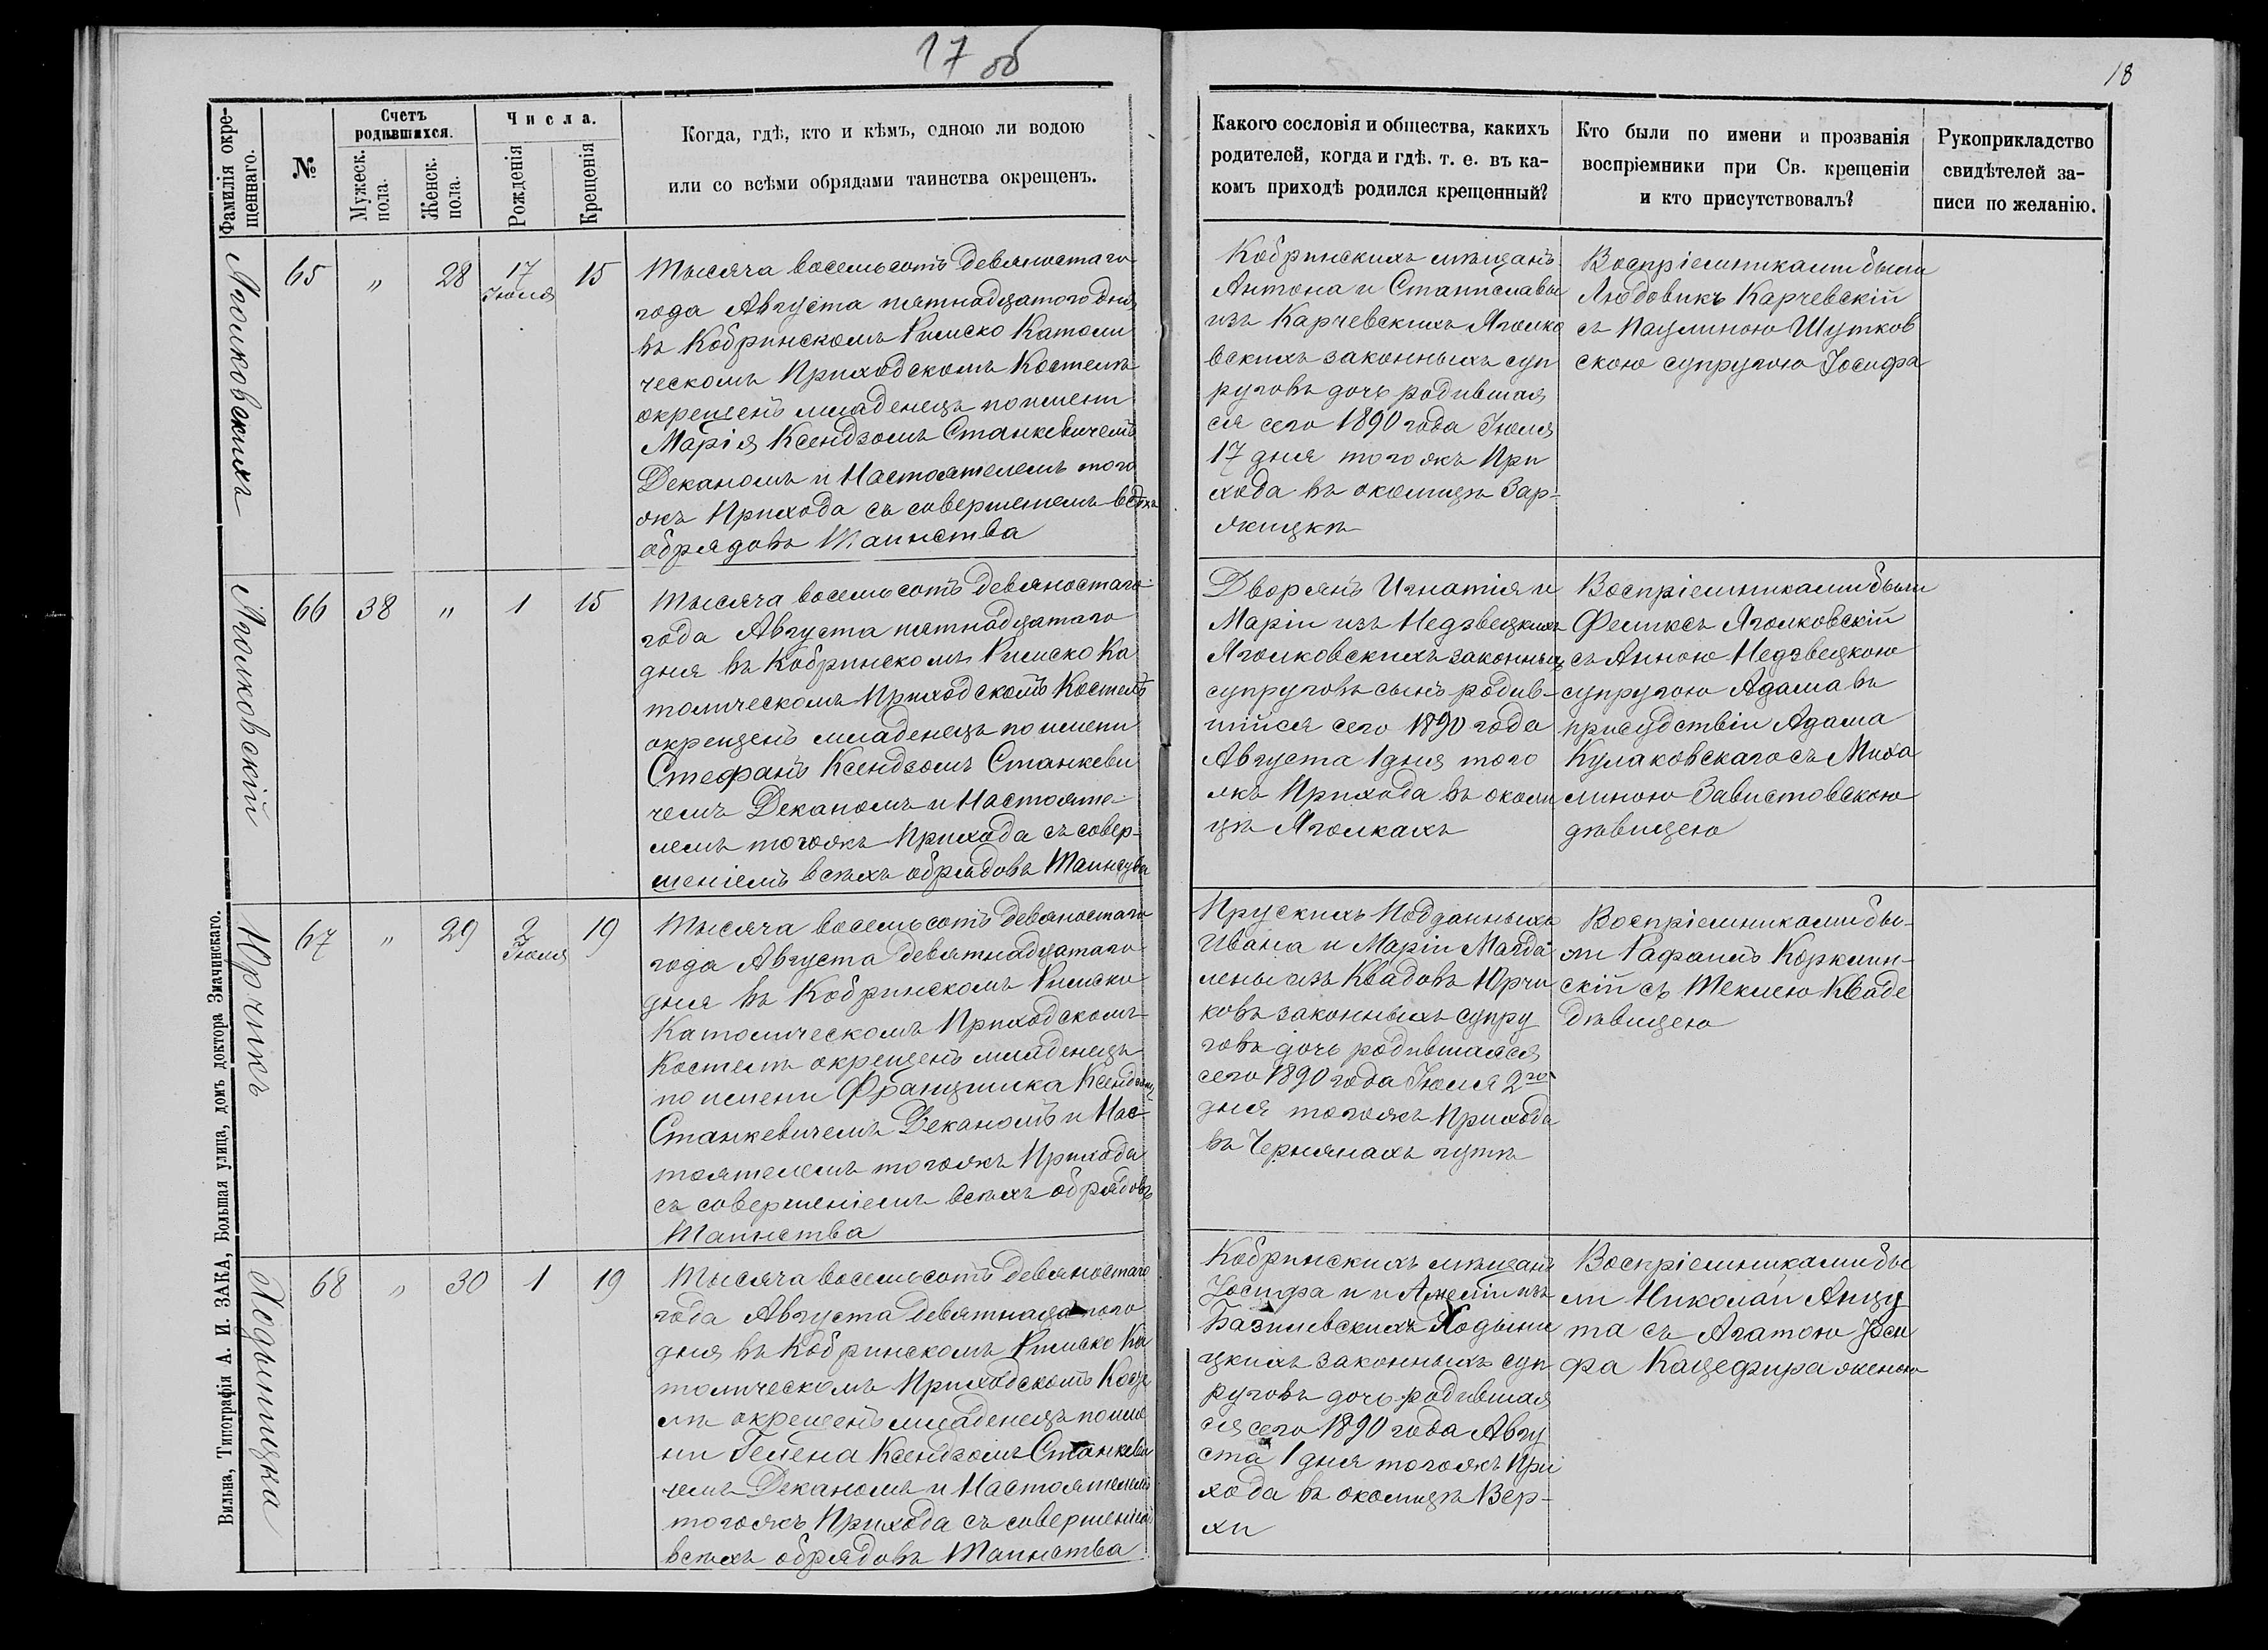 17 об
18
Фамилія окре-
щеннаго.
№
Счетъ
родившихся.
Мужеск.
пола.
Женск.
пола.
Числа.
Рожденія
Крещенія
Когда, гдѣ, кто и кѣмъ, одною ли водою
или со всѣми обрядами таинства окрещенъ.
Какого сословія и общества, какихъ
родителей, когда и гдѣ. т. е. въ ка-
комъ приходѣ родился крещенный?
Кто были по имени и прозванія
воспріемники при Св. крещеніи
и кто присутствовалъ?
Рукоприкладство
свидѣтелей за-
писи по желанію.
Яголковскихъ
65 „ 28 17 Іюля 15
Тысяча восемьсотъ девяностаго
года Августа пятнадцатого дня
въ Кобринскомъ Римско Католи
ческомъ Приходскомъ Костелѣ
окрещенъ младенецъ по имени
Марія Ксендзомъ Станкевичемъ
Деканомъ и Настоятелемъ того
жъ Прихода съ совершеніемъ всѣхъ
обрядовъ Таинства
Кобринскихъ мѣщанъ
Антона и Станиславы
изъ Карчевскихъ Яголко
вскихъ законныхъ суп
руговъ дочь родившая
ся сего 1890 года Іюля
17 дня того жъ При
хода въ околицѣ Зар-
жицкѣ
Воспріемниками были
Людовикъ Карчевскій
съ Паулиною Шутков
скою супругою Іосифа
Яголковскій
66 38 „ 1 15
Тысяча восемьсотъ девяностаго
года Августа пятнадцатаго
дня въ Кобринскомъ Римско Ка
толическомъ Приходскомъ Костелѣ
окрещенъ младенецъ по имени
Стефанъ Ксендзомъ Станкеви
чемъ Деканомъ и Настояте-
лемъ тогожъ Прихода съ совер-
шеніемъ всѣхъ обрядовъ Таинства
Дворянъ Игнатія и
Маріи изъ Недзвецкихъ
Яголковскихъ законныхъ
супруговъ сынъ родив-
шійся сего 1890 года
Августа 1 дня того
жъ Прихода въ околи
цѣ Яголкахъ
Воспріемниками были
Феликсъ Яголковскій
съ Анною Недзвецкою
супругою Адама въ
присудствіи Адама
Кулаковскаго съ Миха
линою Завистовскою
дѣвицею
Юрчикъ
67 „ 29 2 Іюля 19
Тысяча восемьсотъ девяностаго
года Августа девятнадцатаго
дня въ Кобринскомъ Римско
Католическомъ Приходскомъ
Костелѣ окрещенъ младенецъ
по имени Францишка Ксендзомъ
Станкевичемъ Деканомъ и Нас-
тоятелемъ тогожъ Прихода
съ совершеніемъ всѣхъ обрядовъ
Таинства
Прускихъ Подданныхъ
Ивана и Маріи Магда
лены изъ Квадовъ Юрчи
ковъ законныхъ супру
говъ дочь родившаяся
сего 1890 года Іюля 2го
дня тогожъ Прихода
въ Чернянахъ гутѣ
Воспріемниками бы-
ли Рафаилъ Корклин-
скій съ Теклею Кваде
дѣвицею
Ходыницка
68 „ 30 1 19
Тысяча восемьсотъ девяностаго
года Августа девятнадцатого
дня въ Кобринскомъ Римско Ка
толическомъ Приходскомъ Косте
лѣ окрещенъ младенецъ по име
ни Гелена Ксендзомъ Станкеви
чемъ Деканомъ и Настоятелемъ
тогожъ Прихода съ совершеніемъ
всѣхъ обрядовъ Таинства
Кобринскихъ мѣщанъ
Іосифа и и Анеліи изъ
Базилевскихъ Ходыни
цкихъ законныхъ суп
руговъ дочь родившая
ся сего 1890 года Авгу
ста 1 дня тогожъ При
хода въ околицѣ Вер-
хи
Воспріемниками бы
ли Николай Анцу
та съ Агатою Іоси
фа Кацефира женою
Вильна, Типографія А. И. ЗАКА, Большая улица, домъ доктора Значинскаго.